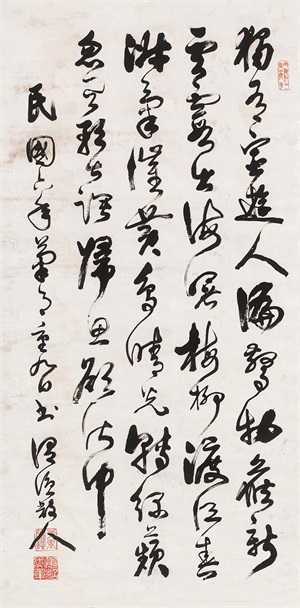 獨有宦遊人偏驚物候新
雲霞出海曙梅柳渡江春
淑氣催黃鳥晴光轉綠蘋
忽聞歌古調歸思欲沾巾
民國六年菊月重九日書 散人